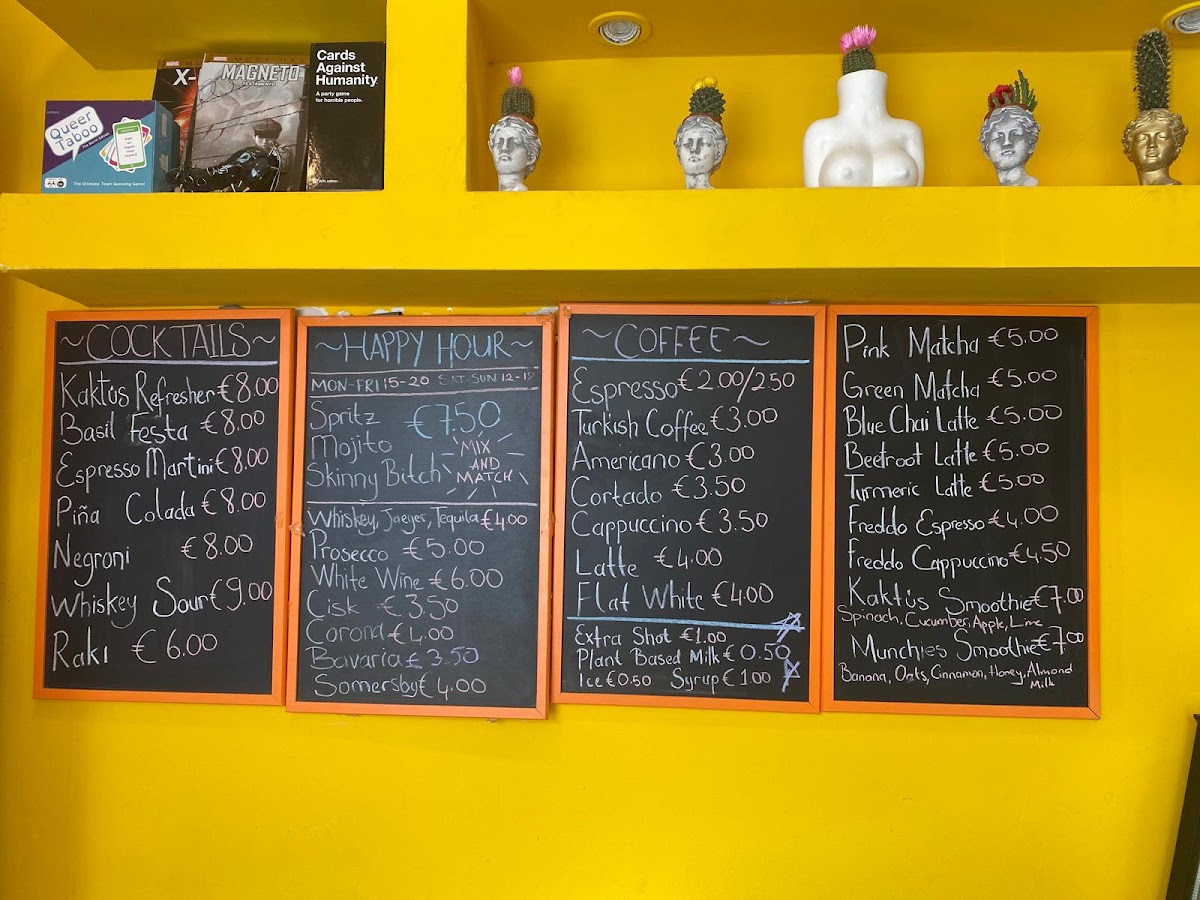 Queer
Taboo
The Ultimate Team Guessing Game!
MARVEL
X-
MARVEL
MAGNETO
TESTAMENTO
Cards
Against
Humanity
A party game
for horrible people.
~COCKTAILS~
Kaktus Refresher €8.00
Basil Festa €8.00
Espresso Martini €8.00
Piña Colada €8.00
Negroni €8.00
Whiskey Sour €9.00
Raki €6.00
~HAPPY HOUR~
MON-FRI 15-20 SAT-SUN 12-18
Spritz €7.50
Mojito
Skinny Bitch
MIX
AND
MATCH
Whiskey, Jaeger, Tequila €4.00
Prosecco €5.00
White Wine €6.00
Cisk €3.50
Corona €4.00
Bavaria €3.50
Somersby €4.00
~COFFEE~
Espresso €2.00/2.50
Turkish Coffee €3.00
Americano €3.00
Cortado €3.50
Cappuccino €3.50
Latte €4.00
Flat White €4.00
Extra Shot €1.00
Plant Based Milk €0.50
Ice €0.50 Syrup €1.00
Pink Matcha €5.00
Green Matcha €5.00
Blue Chai Latte €5.00
Beetroot Latte €5.00
Turmeric Latte €5.00
Freddo Espresso €4.00
Freddo Cappuccino €4.50
Kaktus Smoothie €7.00
Spinach, Cucumber, Apple, Lime
Munchies Smoothie €7.00
Banana, Oats, Cinnamon, Honey, Almond
Milk